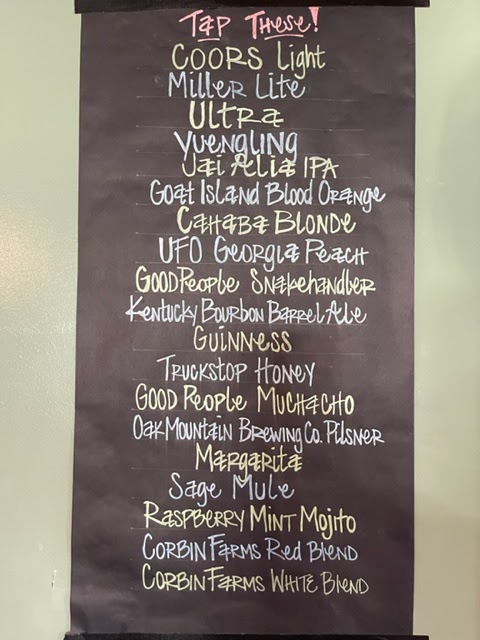 TAP THESE!
COORS Light
Miller Lite
Ultra
Yuengling
Jai Alia IPA
Goat Island Blood Orange
CAHABA BLONDE
UFO Georgia Peach
GOOD People Snakehandler
Kentucky Bourbon Barrel Ale
Guinness
Truckstop Honey
GOOD People Muchacho
Oak Mountain Brewing Co. Pilsner
Margarita
Sage Mule
Raspberry Mint Mojito
Corbin Farms Red Blend
Corbin Farms White Blend